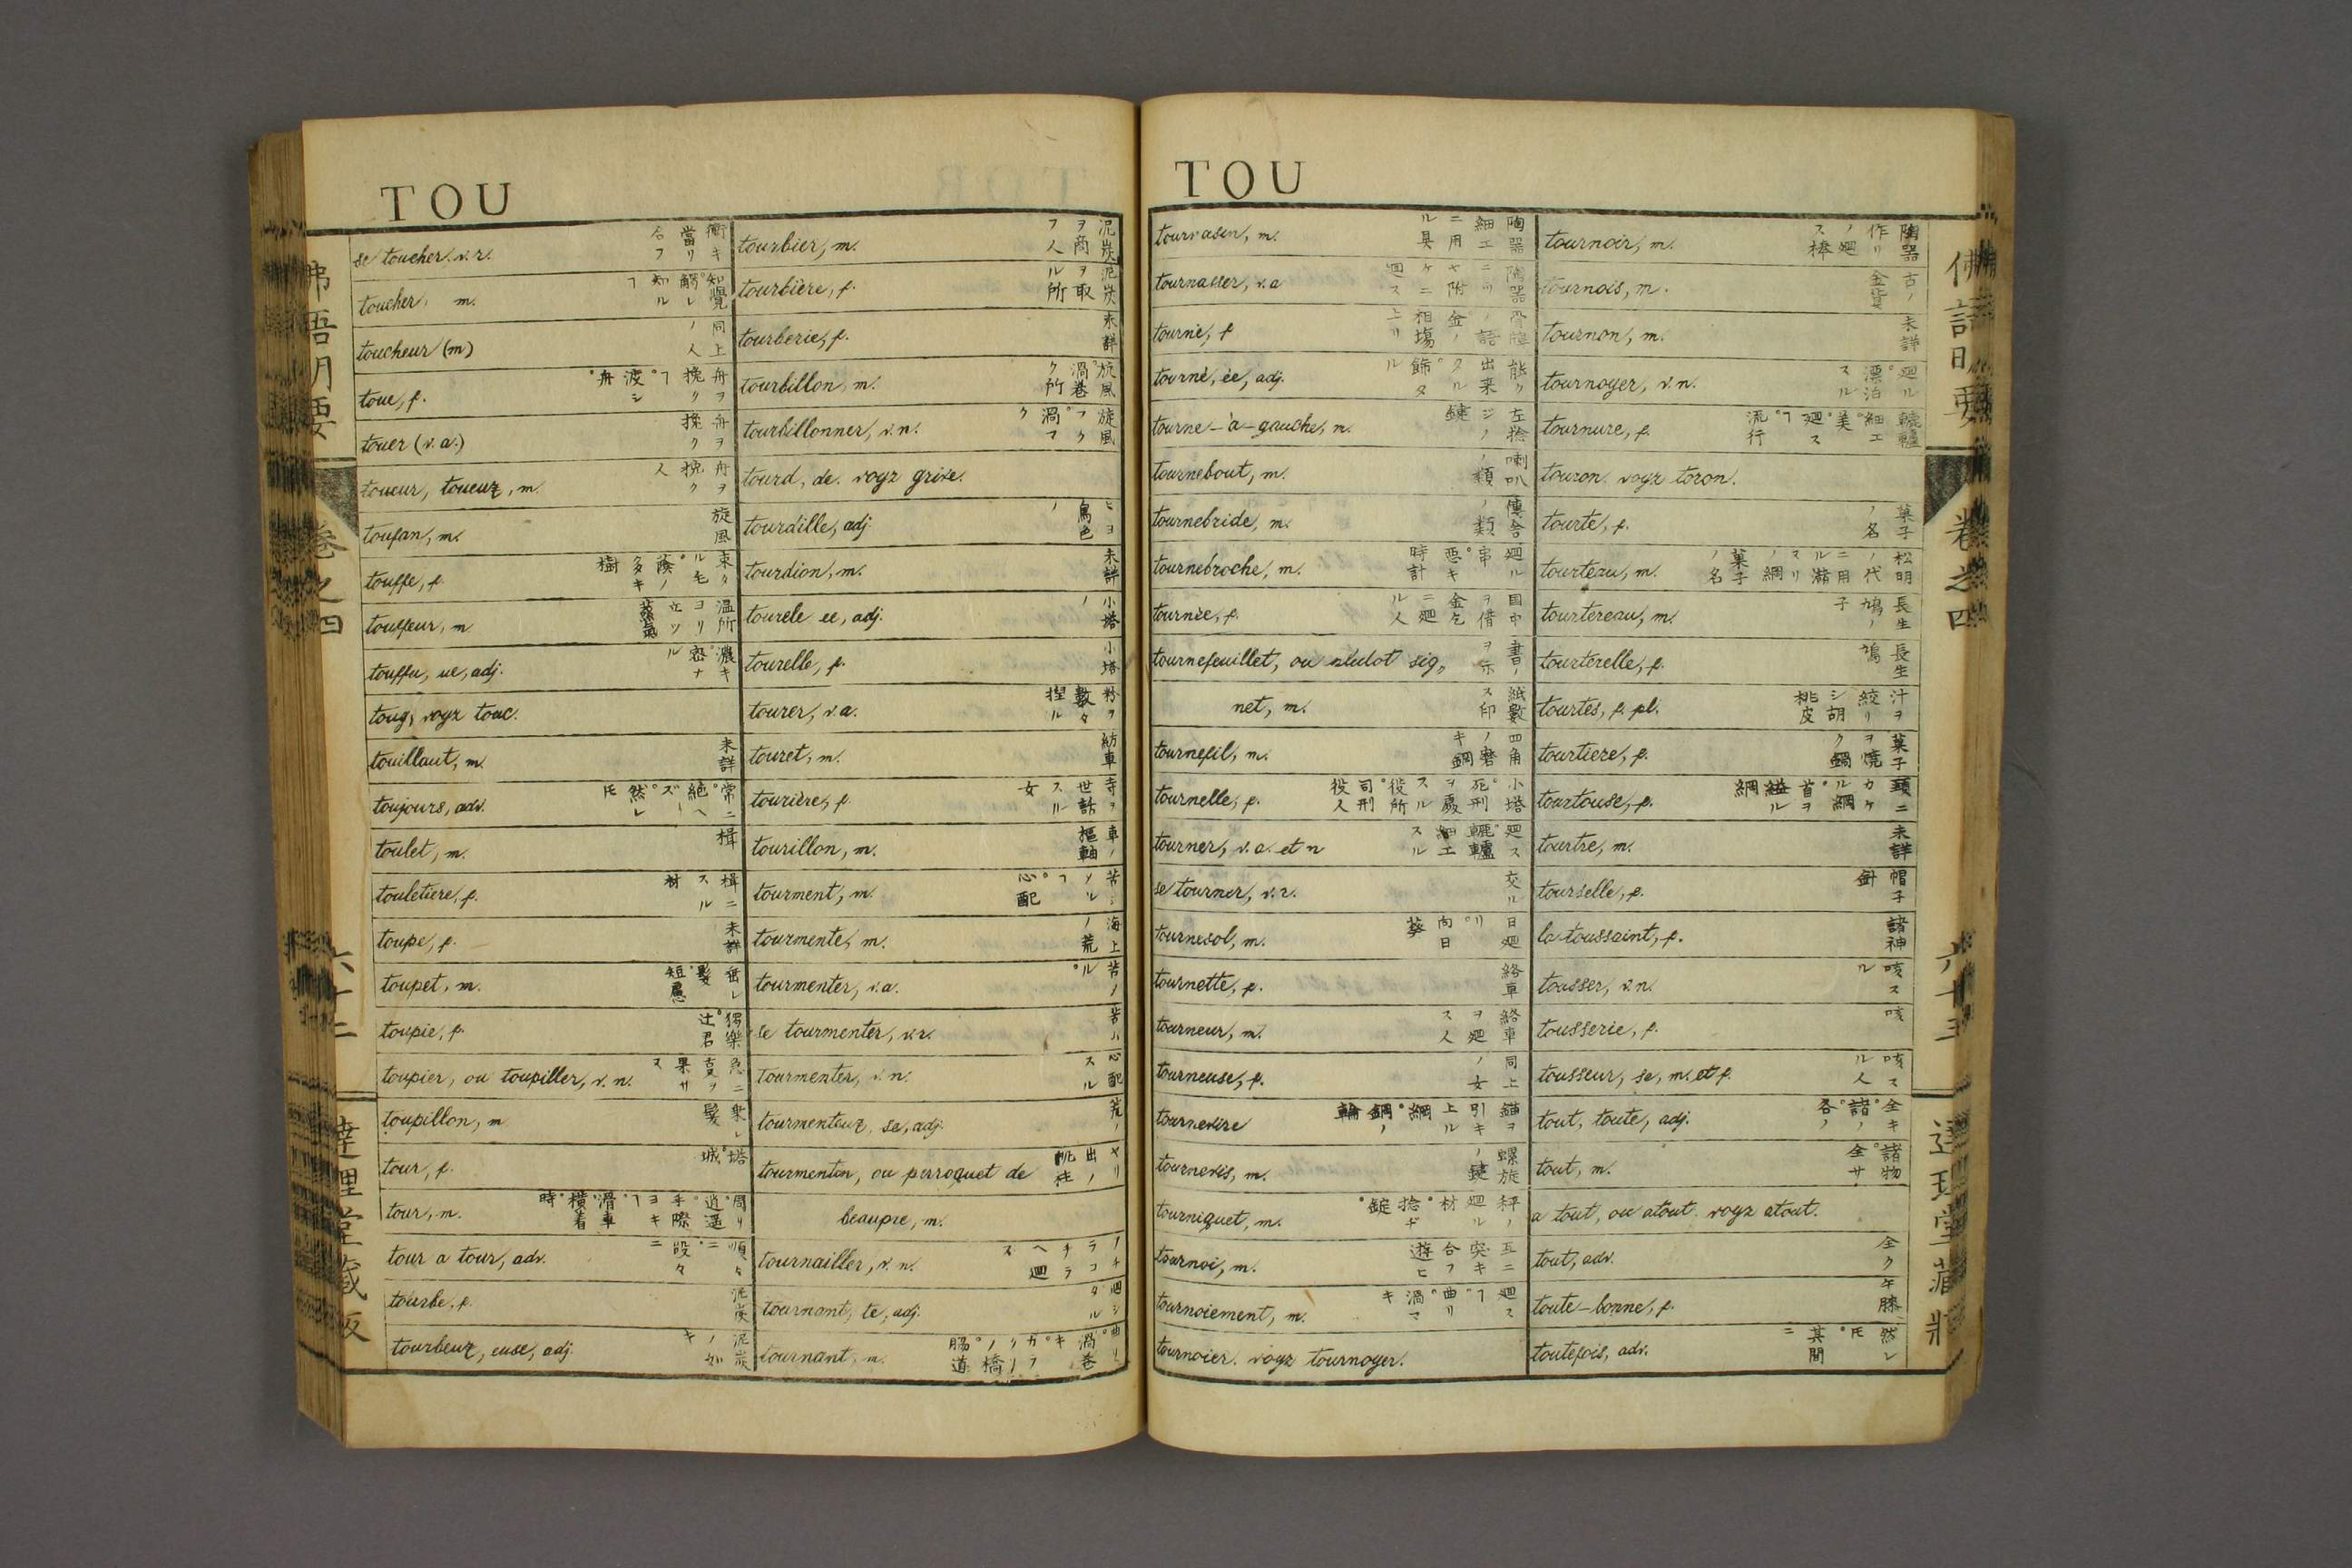 TOU
se toucher. v.r. 衝キ當リ合フ
toucher, m. 知覺觸レ知ルヿ
toucheur (m) 同上ノ人
toue, f. 舟ヲ挽クヿ。渡シ舟。
touer (v.a.) 舟ヲ挽ク
toueur, toueuz, m. 舟ヲ挽ク人
toufan, m. 旋風
touffe, f. 束タル毛。蔭ノ多キ樹
touffeur, m 温所ヨリ立ツ蒸氣
touffu, ue, adj. 濃キ。密ナル
toug, voyz touc.
touillaut, m. 未詳
toujours, adv. 常ニ。絶ヘズ。然レ𪜈
toulet, m. 楫
touletiere, f. 楫ニスル材
toupe, f. 未詳
toupet, m. 垂レ髮。短慮
toupie, f. 獨樂。辻君
toupier, ou toupiller, v.n. 急ニ㕝ヲ果サヌ
toupillon, m 垂レ髮
tour, f. 塔。城
tour, m. 周リ。逍遥。手際ヨキヿ。滑車。横着。時
tour a tour, adv. 順々ニ。段々ニ
tourbe, f. 泥炭
tourbeuz, euse, adj. 泥炭ノ如キ
tourbier, m. 泥炭ヲ商フ人
tourbière, f. 泥炭ヲ取ル所
tourberie, f. 未詳
tourbillon, m. 旋風。渦巻ク所
tourbillonner, v.n. 旋風フク。渦マク
tourd, de. voyz grive.
tourdille, adj. ヒヨ鳥色ノ
tourdion, m. 未詳
tourele ee, adj. 小塔ノ
tourelle, f. 小塔
tourer, v.a. 粉ヲ數々捏ル
touret, m. 紡車
tourière, f. 寺ヲ世話スル女
tourillon, m. 車ノ樞軸
tourment, m. 苦シメルヿ。心配
tourmente, m. 海上ノ荒
tourmenter, v.a.
se tourmenter, v.r.
Tourmenter, v.n. 心配スル
tourmenteuz, se, adj.
tourmentin, ou perroquet de
beaupre, m. ヤリ出ノ帆柱
tournailler, v.n.
tournant, te, adj.
tournant, m.
TOU
tournasen, m. 陶器細工ニ用ル具
tournasser, v.a
tourne, f
tourné, ée, adj. 能ク出来タル。飾タル
tourne-à-gauche, m. 左捻ジノ鍵
tournebout, m. 喇叭ノ類
tournebride, m. 傳舎ノ類
tournebroche, m. 廻ル串。悪キ時計
tournée, f. 国中ヲ借金乞ニ廻ル人
tournefeuillet, ou sludot sig„
net, m. 書ノ紙數ヲ示ス印
tournefil, m. 四角ノ磨キ鋼
tournelle, f. 小塔。死刑ヲ處スル役所。司刑役人
tourner, v.a. et n 廻ス。轆轤細工スル
se tourner, v.r. 交ル
tournesol, m. 日廻リ。向日葵
tournette, f. 絡車
tourneur, m. 絡車ヲ廻ス人
tourneuse, f. 同上ノ女
tournevire 錨ヲ引キ上ル綱。鋼ノ輪
tournevis, m. 螺旋ノ鍵
tourniquet, m. 秤ノ廻ル材。捻ヂ錠。
tournoi, m. 互ニ突キ合フ遊ヒ
tournoiement, m. 廻スヿ。曲リ。渦マキ
tournoier. voyz tournoyer.
tournoir, m. 陶器作リノ廻ス棒
tournois, m. 古ノ金貨
tournon, m. 未詳
tournoyer, v.n. 廻ル。漂泊スル
tournure, f. 轆轤細工。美。廻スヿ。流行
touron. voyz toron.
tourte, f. 菓子ノ名
tourteau, m. 松明ノ代ニ用ル瀝マリノ綱。菓子ノ名
tourtereau, m. 長生鳩ノ子
tourterelle, f. 長生鳩
tourtes, f. pl. 汁ヲ絞リシ胡桃皮
tourtiere, f. 菓子ヲ燒ク鍋
tourtouse, f. 頭ニカケル綱。首ヲ縊ル綱
tourtre, m. 未詳
tourselle, f. 帽子針
la toussaint, f. 諸神
tousser, v.n. 咳スル
tousserie, f. 咳
tousseur, se, m. et f. 咳スル人
tout, toute, adj. 全キ。諸ノ。各ノ
tout, m. 諸物。全サ
a tout, ou atout. voyz atout.
tout, adv. 全ク
toute-bonne, f. 午膝
toutefois, adv. 然レ𪜈。其間ニ
佛語明要
卷之四
六十三
達理堂藏版